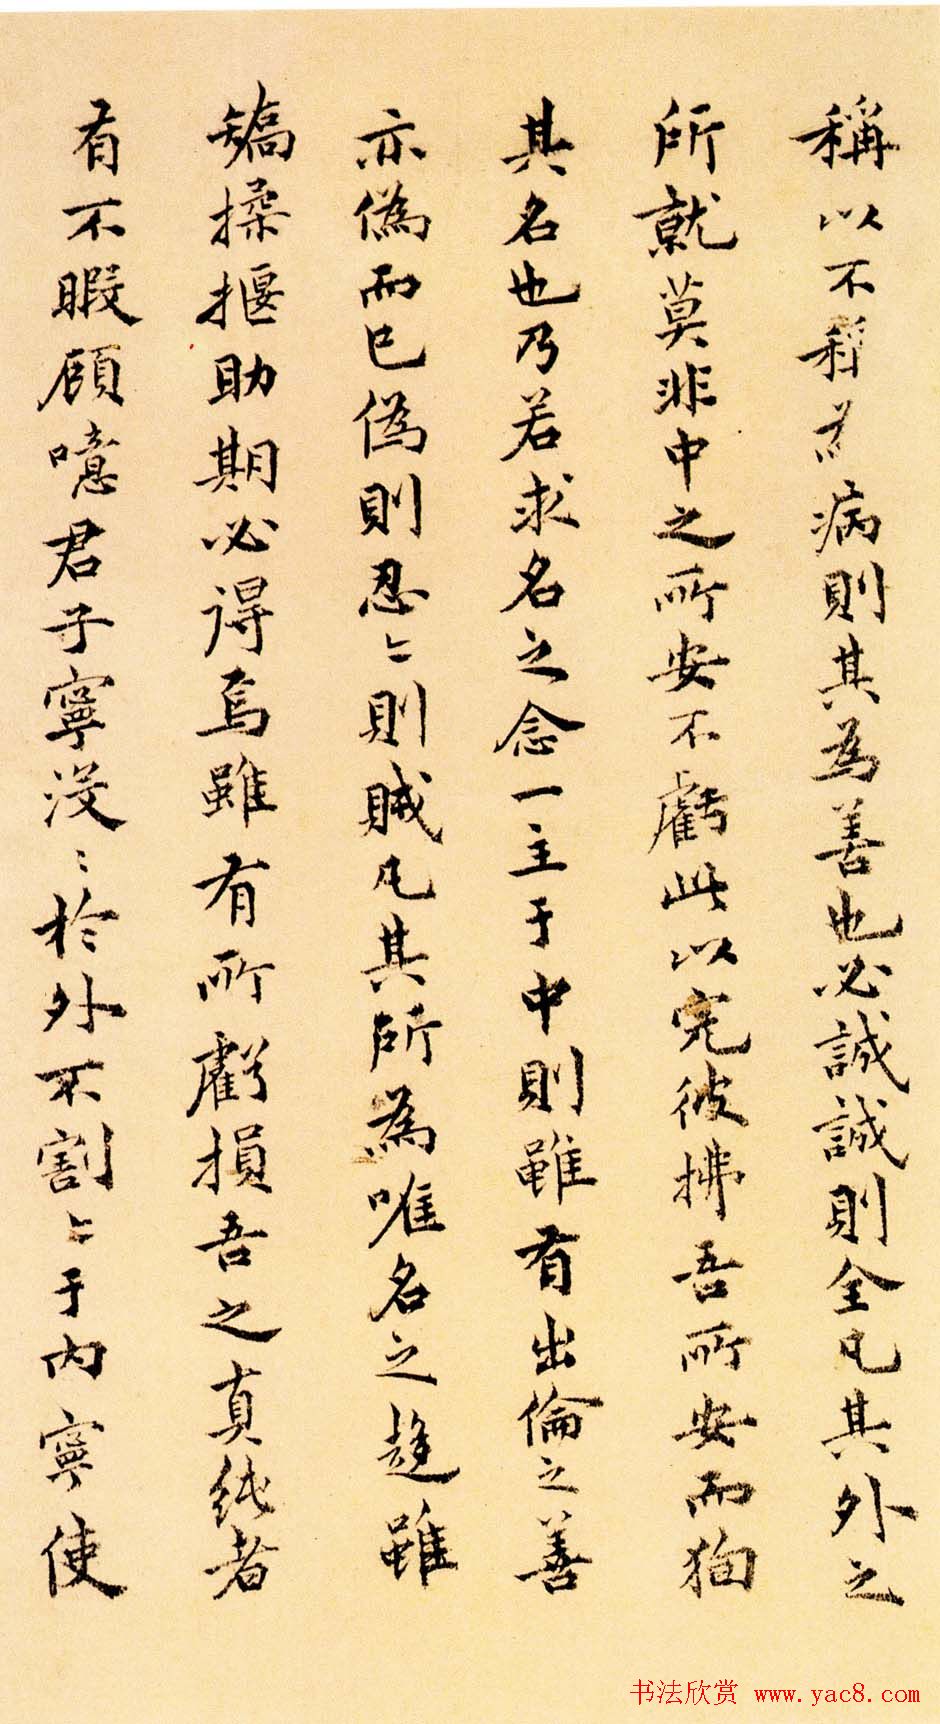 稱以不稱為病則其為善也必誠誠則全凡其外之
所就莫非中之所安不虧此以完彼拂吾所安而狥
其名也乃若求名之念一主于中則雖有出倫之善
亦偽而已偽則忍〻則賊凡其所為唯名之趍雖
矯揉揠助期必得焉雖有所虧損吾之真純者
有不暇顧噫君子寧没〻於外不割〻于内寧使
书法欣赏 www.yac8.com